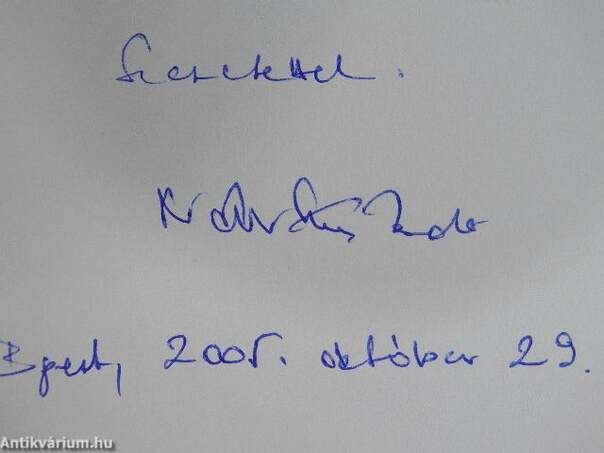 Szeretettel.
Bpest, 2005. október 29.
Antikvárium.hu